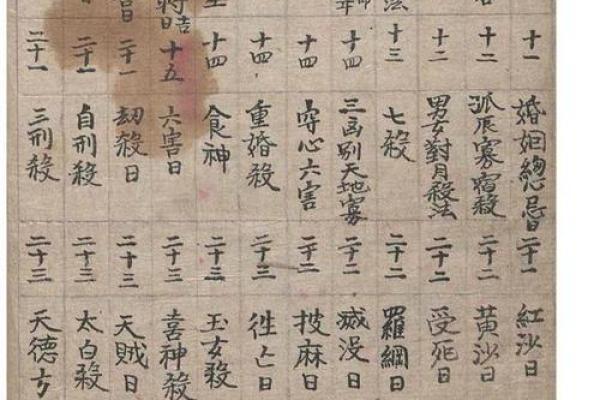 十一 婚姻總忌日 二十一 紅沙日
十二 孤辰寡宿殺 二十二 黃沙日
十二 男女對月殺法 二十二 受死日
法 十三 七殺 二十二 羅網日
十四 三函别天地寡 二十二 滅没日
十四 穿心六害 二十二 披麻日
十四 重婚殺 二十三 徃亡日
十四 食神 二十三 玉女殺
十五 六害日 二十三 喜神殺
二十一 劫殺日 二十三 天賊日
二十一 自刑殺 二十三 太白殺
二十一 三刑殺 二十三 天德方